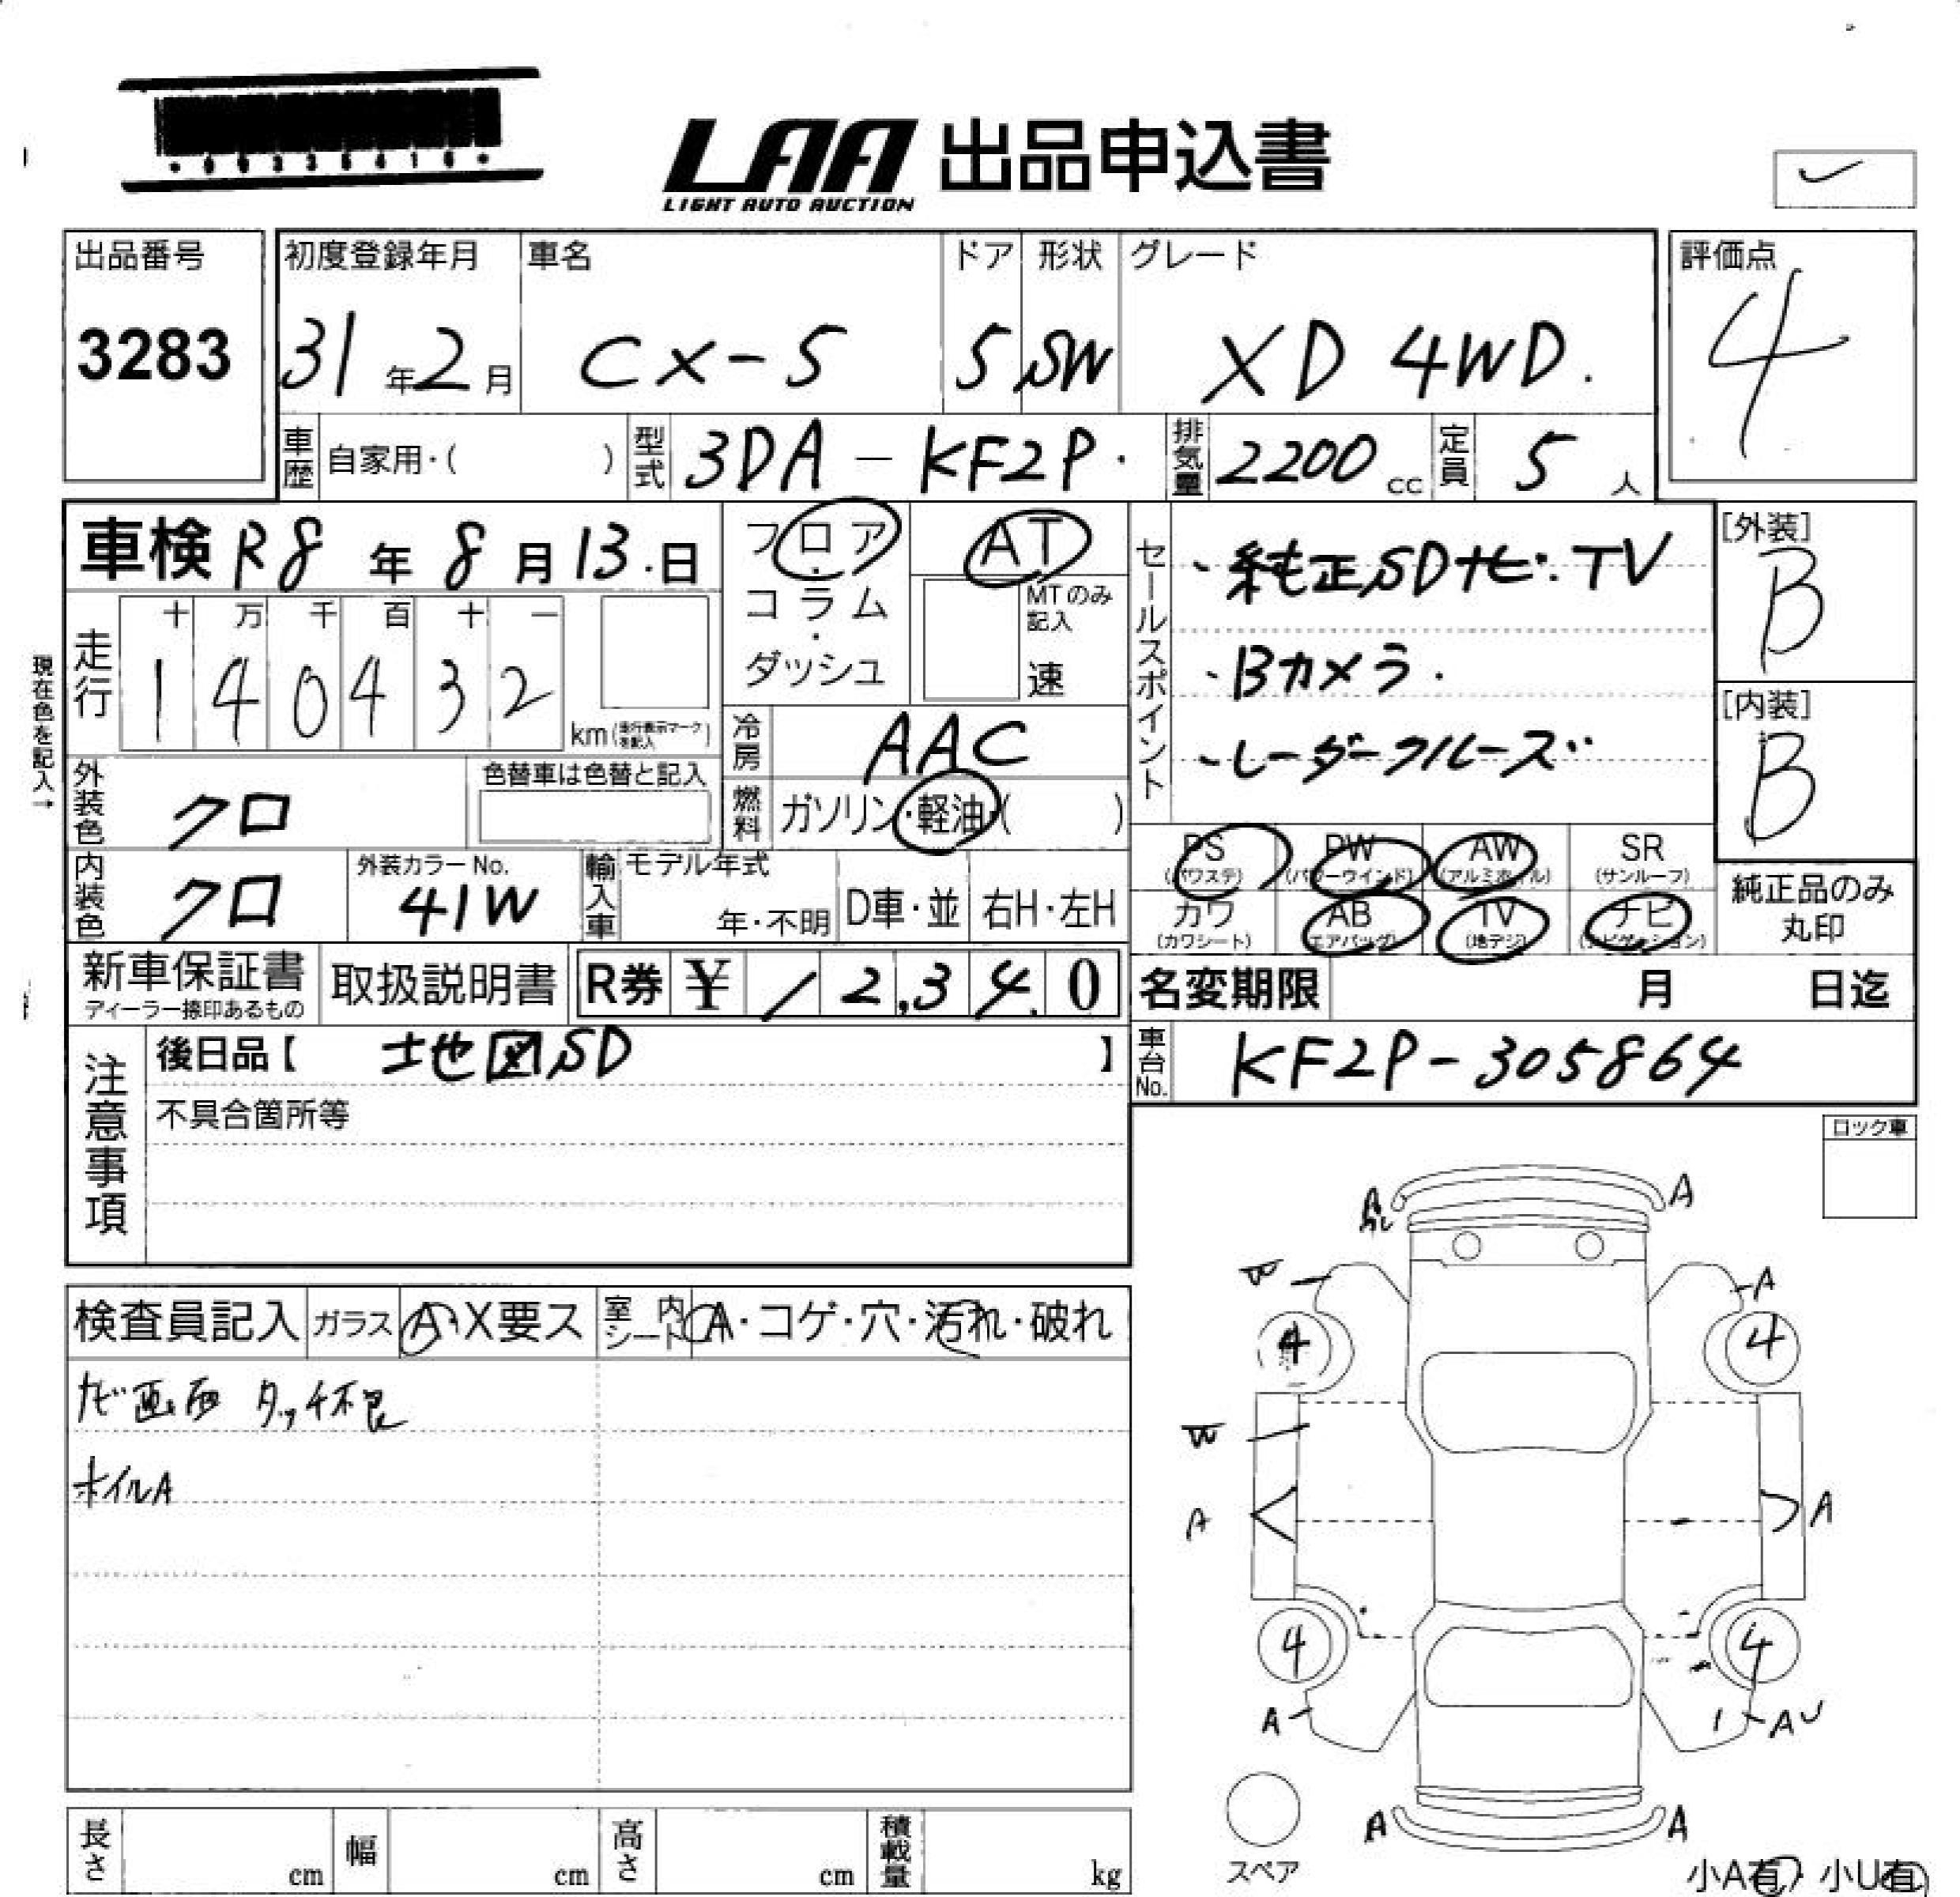 LAA 出品申込書
LIGHT AUTO AUCTION
出品番号 初度登録年月 車名 ドア 形状 グレード 評価点
3283 31年2月 CX-5 5 SW XD 4WD. 4
車歴 自家用・( ) 型式 3DA-KF2P. 排気量 2200cc 定員 5人
車検 R8年8月13.日 フロア・コラム・ダッシュ AT MTのみ記入 速
セールスポイント
・純正SDナビ.TV
・Bカメラ.
・レーダークルーズ
[外装] B
[内装] B
現在色を記入→
走行 十 万 千 百 十 一
1 4 0 4 3 2 km (走行表示マークを記入)
冷房 AAC
外装色 クロ 色替車は色替と記入 燃料 ガソリン・軽油・( )
内装色 クロ 外装カラーNo. 41W 輸入車 モデル年式 年・不明 D車・並 右H・左H
PS (パワステ) PW (パワーウインド) AW (アルミホイル) SR (サンルーフ)
カワ (カワシート) AB (エアバッグ) TV (地デジ) ナビ (ナビゲーション)
純正品のみ丸印
新車保証書 ディーラー捺印あるもの 取扱説明書 R券 ¥ 1 2,3 4. 0 名変期限 月 日迄
注意事項 後日品【 地図SD 】 車台No. KF2P-305864
不具合箇所等
ロック車
検査員記入 ガラス A・X要ス 室内シート A・コゲ・穴・汚れ・破れ
ナビ画面 タッチ不良
ホイルA
A A
W A
4 4
W
A A
4 4
A AU
A A
スペア
長さ cm 幅 cm 高さ cm 積載量 kg
小A有・小U有